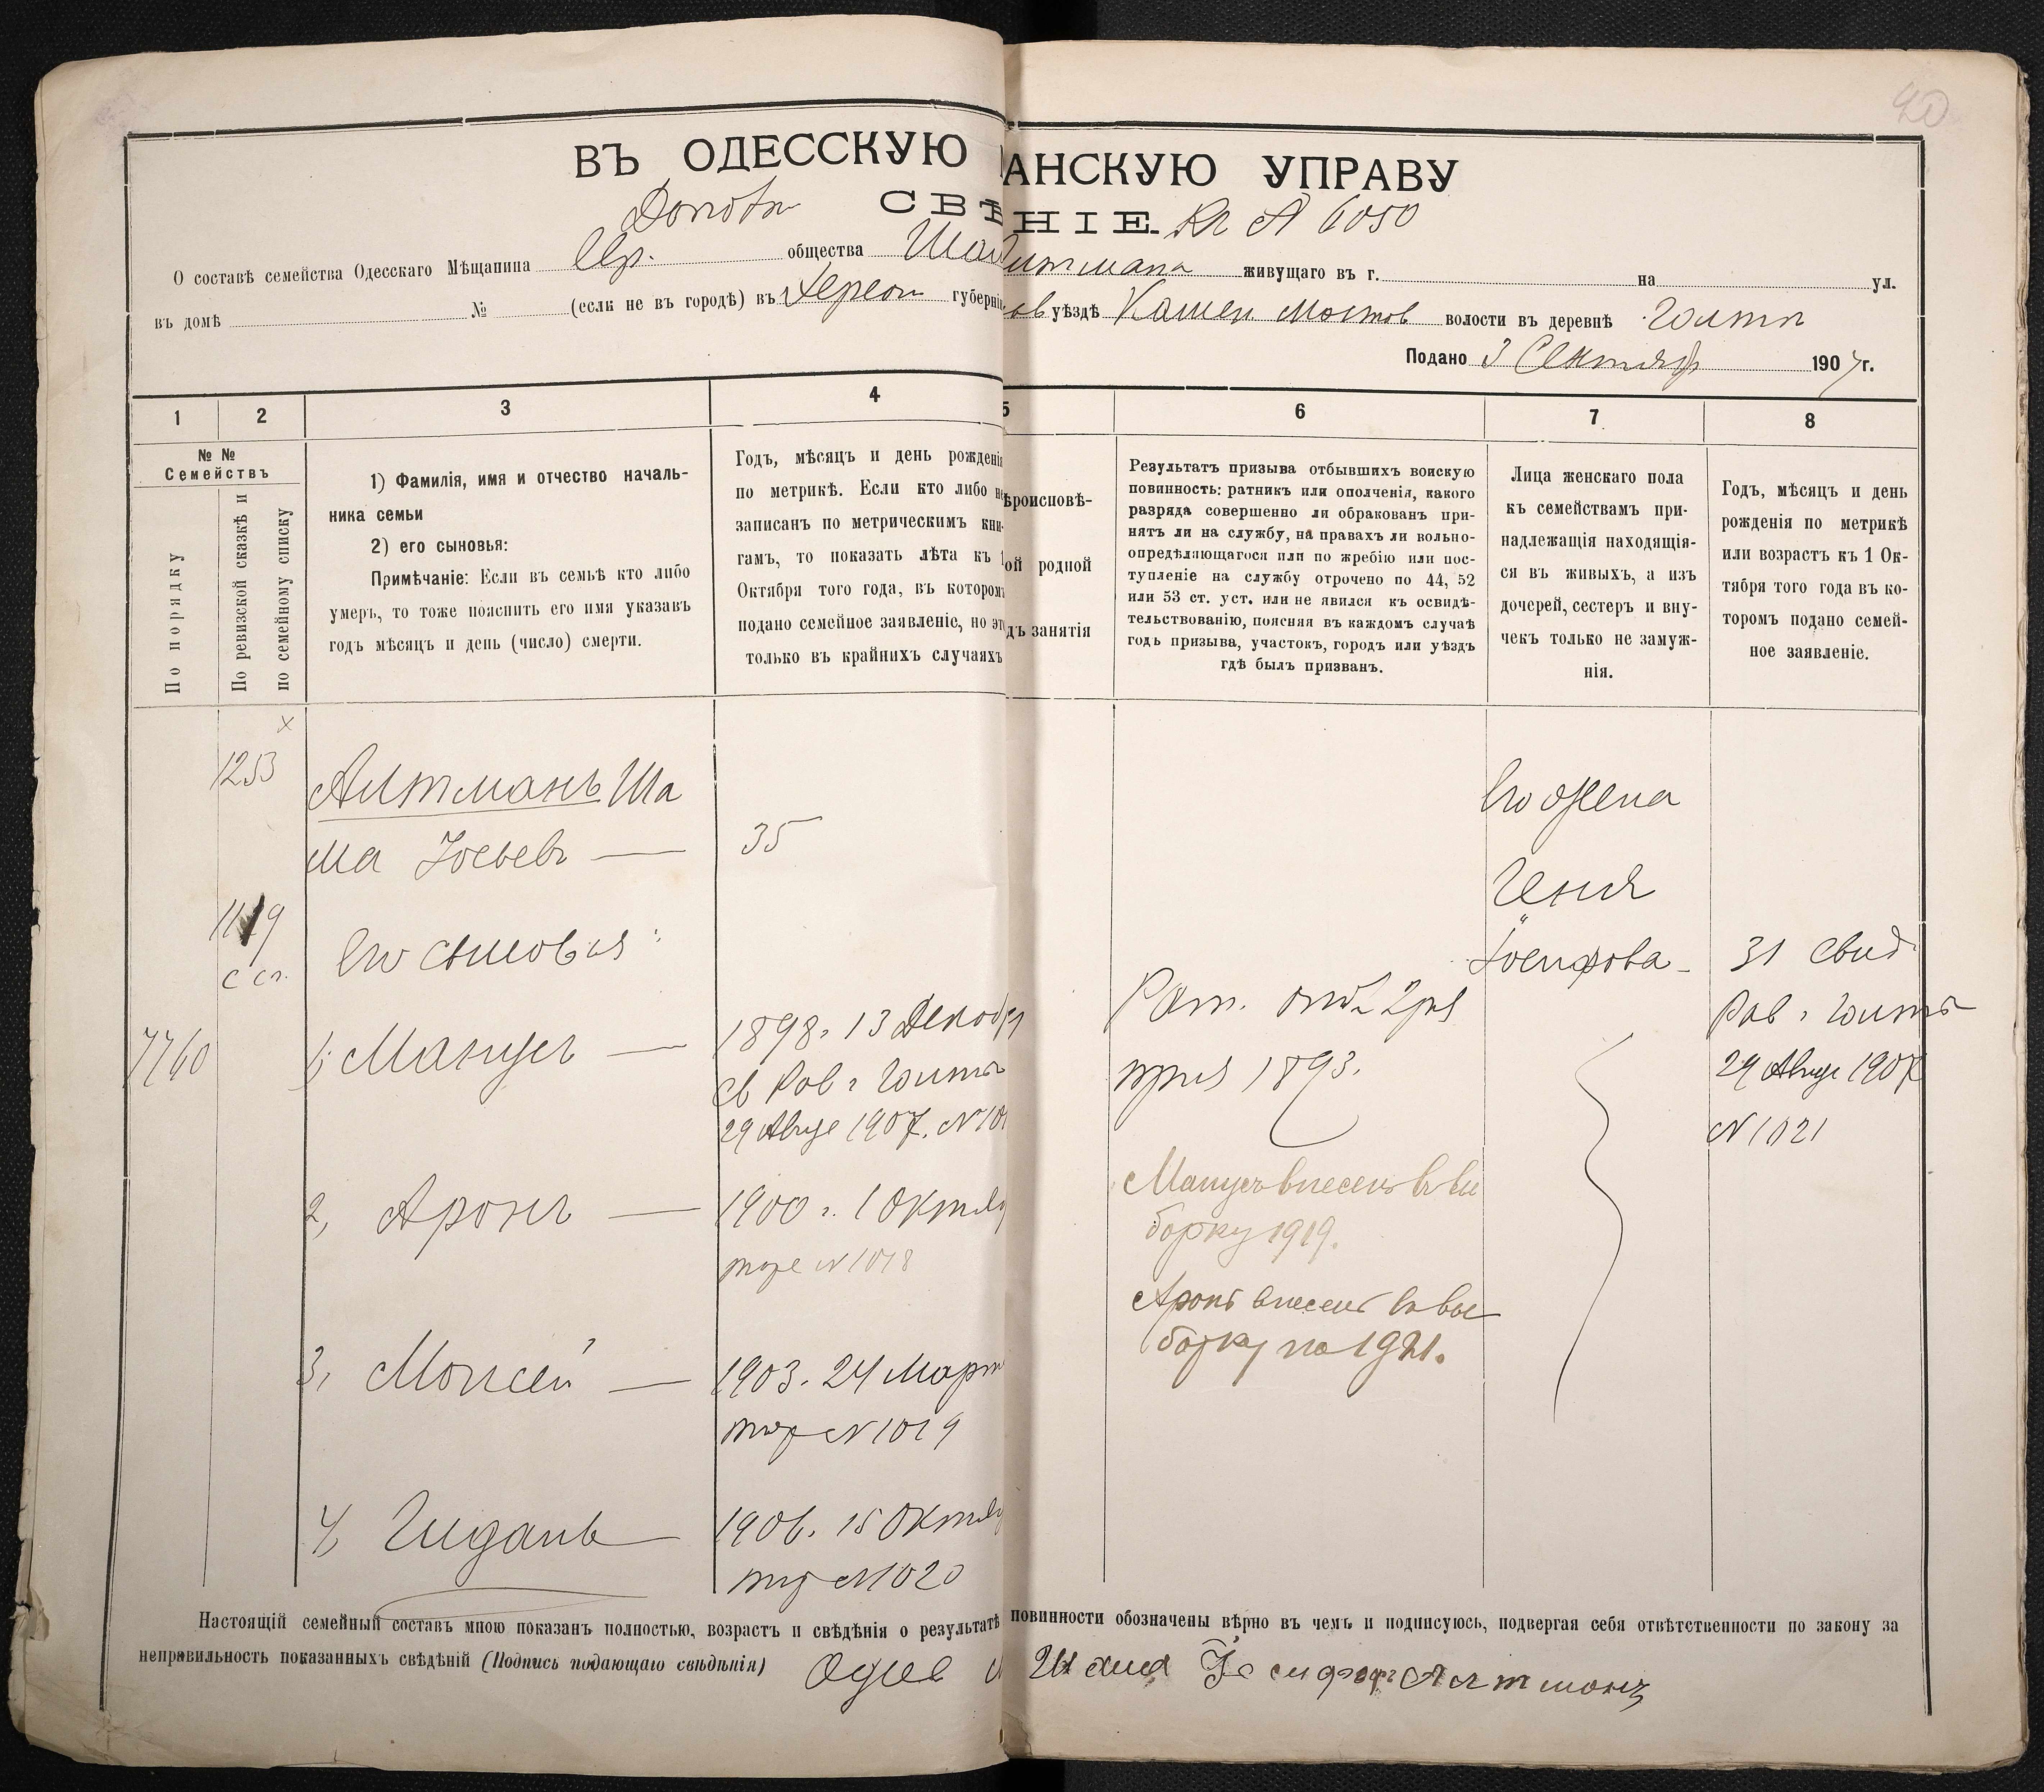 ВЪ ОДЕССКУЮ АНСКУЮ УПРАВУ
СВѢ НІЕ. А 6050
О составѣ семейства Одесскаго Мѣщанина Евр. общества живущаго въ г. на ул.
въ домѣ № (если не въ городѣ) въ Херсон губерні уѣздѣ Камен Мостов волости въ деревнѣ Голта
Подано 3 Сентября 1907 г.
1 2 3 4 5 6 7 8
№ №
Семействъ
По порядку
По ревизской сказкѣ и
по семейному списку
1) Фамилія, имя и отчество началь-
ника семьи
2) его сыновья:
Примѣчаніе: Если въ семьѣ кто либо
умеръ, то тоже пояснить его имя указавъ
годъ мѣсяцъ и день (число) смерти.
Годъ, мѣсяцъ и день рожденія
по метрикѣ. Если кто либо не
записанъ по метрическимъ кни-
гамъ, то показать лѣта къ 1
Октября того года, въ которомъ
подано семейное заявленіе, но эт
только въ крайнихъ случаяхъ
ѣроисповѣ-
ой родной
дъ занятія
Результатъ призыва отбывшихъ воискую
повинность: ратникъ или ополченія, какого
разряда совершенно ли обракованъ при-
нятъ ли на службу, на правахъ ли вольно-
опредѣляющагося или по жребію или пос-
тупленіе на службу отрочено по 44, 52
или 53 ст. уст. или не явился къ освидѣ-
тельствованію, поясняя въ каждомъ случаѣ
годъ призыва, участокъ, городъ или уѣздъ
гдѣ былъ призванъ.
Лица женскаго пола
къ семействамъ при-
надлежащія находящія-
ся въ живыхъ, а изъ
дочерей, сестеръ и вну-
чекъ только не замуж-
нія.
Годъ, мѣсяцъ и день
рожденія по метрикѣ
или возрастъ къ 1 Ок-
тября того года въ ко-
торомъ подано семей-
ное заявленіе.
1253
Алтманъ Ша
ма Іосьевъ — 35
1119
с сп.
Его сыновья:
7760
1, Манусъ — 1898 г 13 Декабр
св Рав г Голты
29 Авгус 1907. N 101
2, Аронъ — 1900 г. 1 Октяб
тоже N 1018
3, Моисей — 1903. 24 Март
тож N 1019
4, Гидаль — 1906. 15 Октяб
тож N 1020
Рат. опол 2 раз
приз 1893.
Манусъ внесенъ въ вы
борку 1919.
Аронъ внесенъ въ вы
борку на 1921.
Его жена
Геня
Іосифова —
31 свид
Рав г Голты
29 Авгус 1907
N 1021
Настоящій семейный составъ мною показанъ полностью, возрастъ и свѣдѣнія о результатѣ повинности обозначены вѣрно въ чемъ и подписуюсь, подвергая себя отвѣтственности по закону за
неправильность показанныхъ свѣдѣній (Подпись подающаго свѣдѣнія) Одес М Шама Іосифов Алтманъ